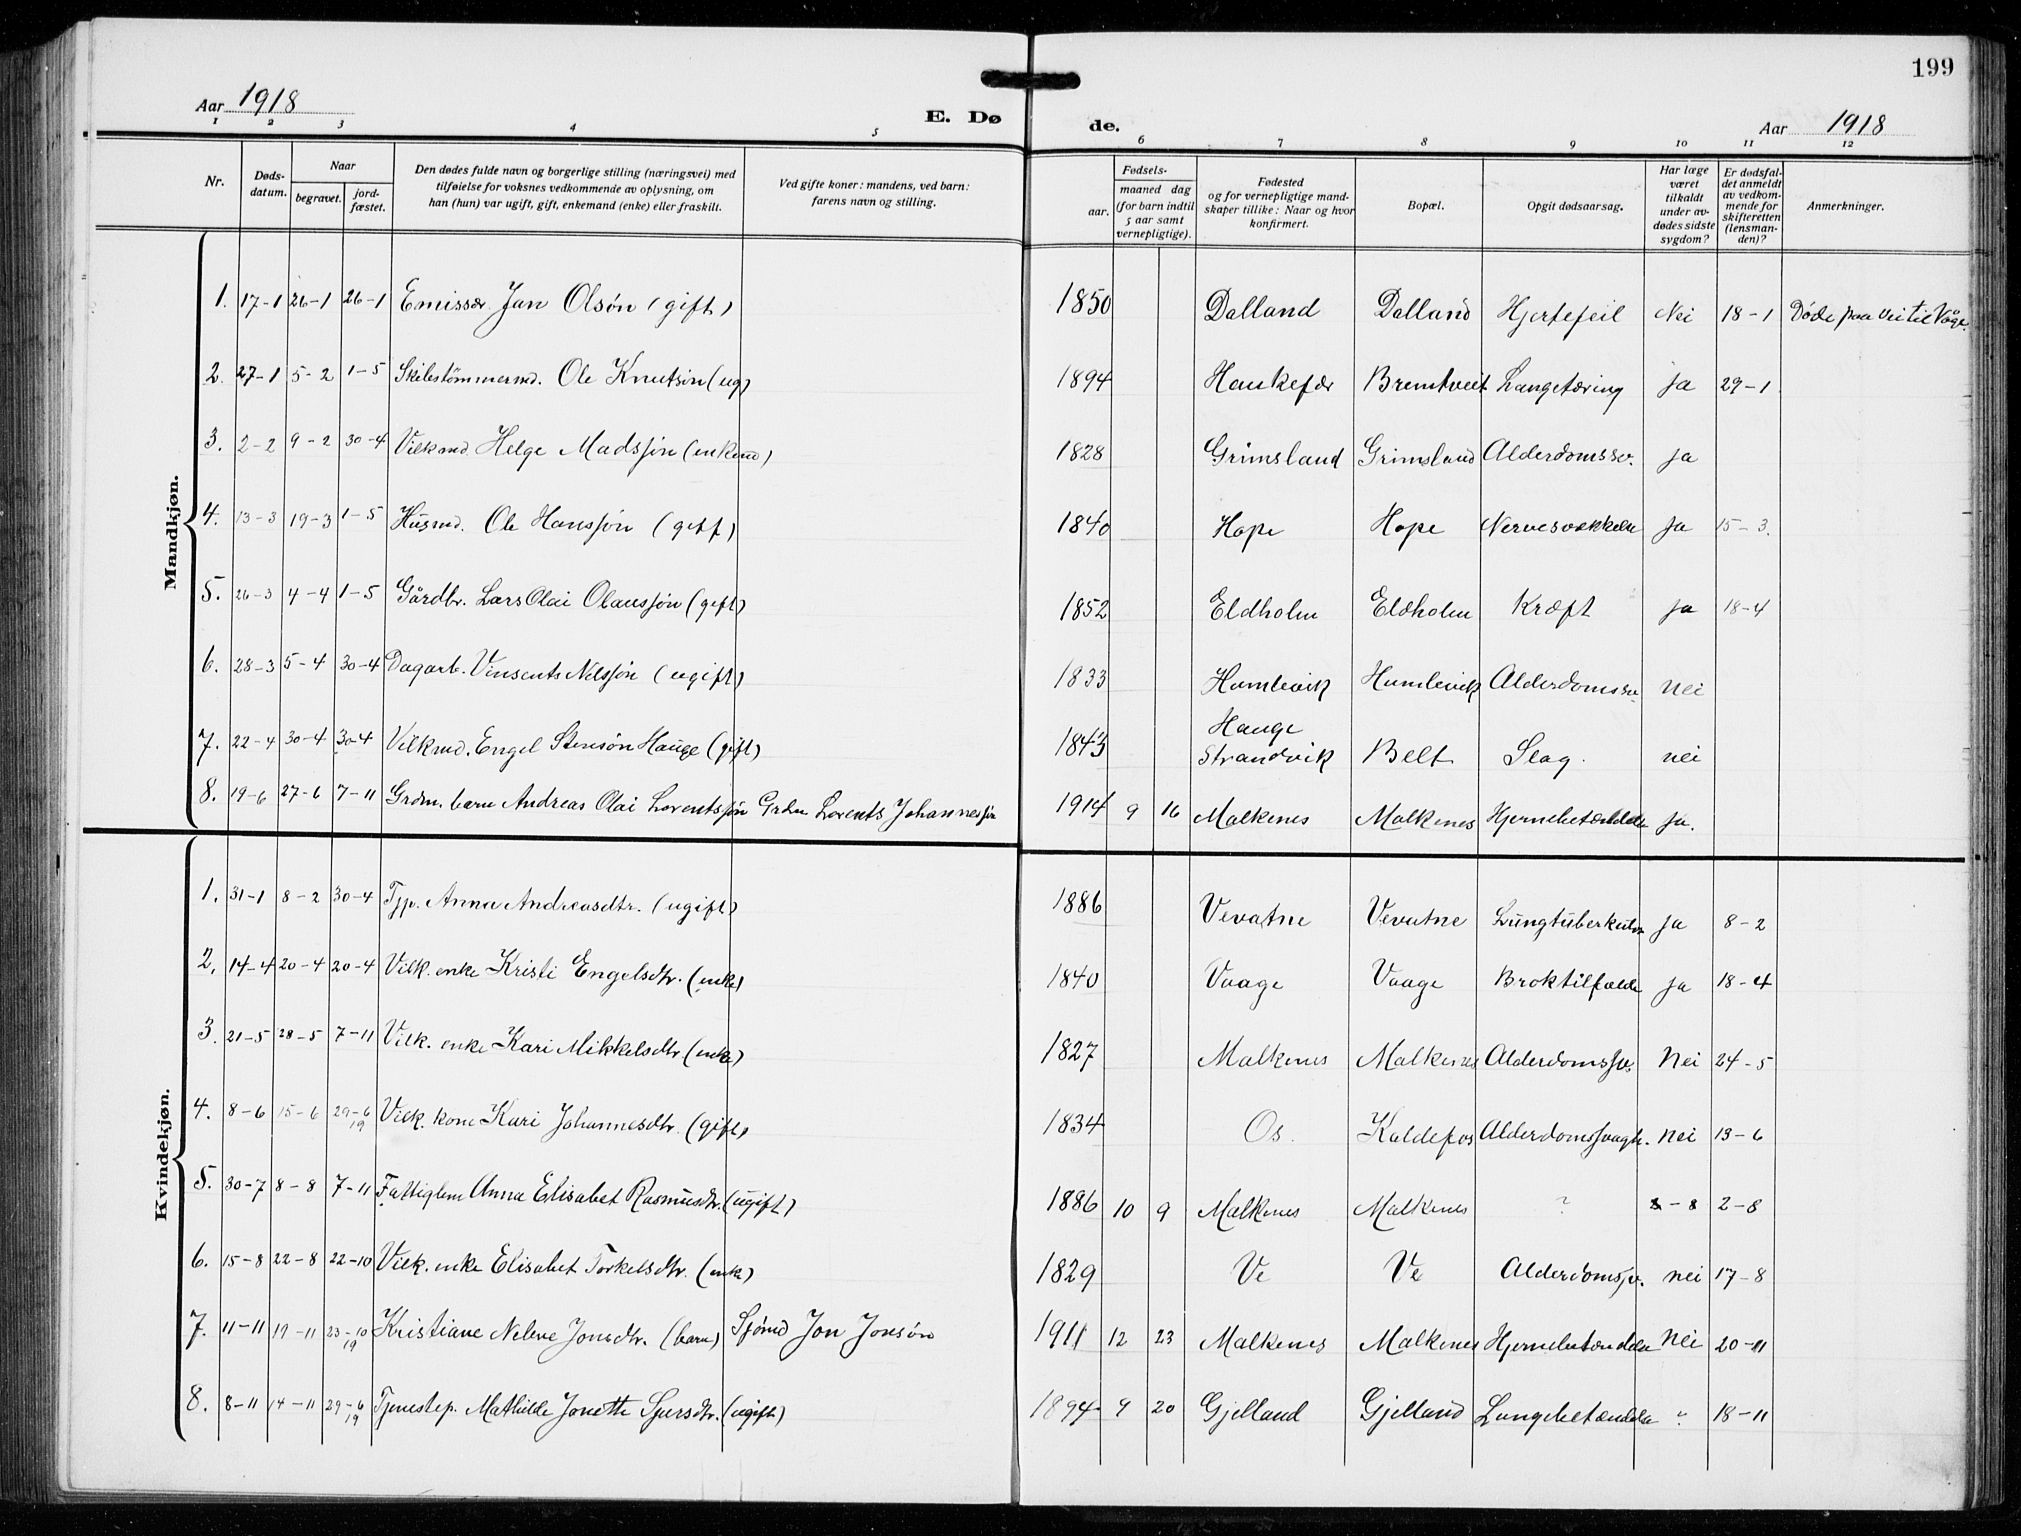 199
Aar 1918
E. Dø de.
Aar 1918
1 2 3 4 5 6 7 8 9 10 11 12
Nr. Døds-datum. Naar begravet. jord-fæstet. Den dødes fulde navn og borgerlige stilling (næringsvei) med tilføielse for voksnes vedkommende av oplysning, om han (hun) var ugift, gift, enkemand (enke) eller fraskilt. Ved gifte koner: mandens, ved barn: farens navn og stilling. Fødsels- aar. maaned dag (for barn indtil 5 aar samt vernepligtige). Fødested og for vernepligtige mand-skaper tillike: Naar og hvor konfirmert. Bopæl. Opgit dødsaarsag. Har læge været tilkaldt under av-dødes sidste sygdom? Er dødsfal-det anmeldt av vedkom-mende for skifteretten (lensman-den)? Anmerkninger.
Mandkjøn.
1. 17-1 26-1 26-1 Emissær Jan Olsøn (gift) 1850 Dalland Dalland Hjertefeil Nei 18-1 Døde paa vei til Våge.
2. 27-1 5-2 1-5 Skibstømmermd. Ole Knutsøn (ug) 1894 Haukefær Bremtveit Langetæring ja 29-1
3. 2-2 9-2 30-4 Vilkmd Helge Madssøn (enkemd) 1828 Grimsland Grimsland Alderdomssv. ja
4. 13-3 19-3 1-5 Husmd. Ole Hanssøn (gift) 1840 Hope Hope Nervesvækkelse ja 15-3.
5. 26-3 4-4 1-5 Gårdbr. Lars Olai Olaussøn (gift) 1852 Eldholm Eldholm Kræft ja 18-4
6. 28-3 5-4 30-4 Dagarb. Vinsents Nilssøn (ugift) 1833 Humlevik Humlevik Alderdomssv. nei
7. 22-4 30-4 30-4 Vilkmd. Engel Stensøn Hauge (gift) 1843 Hauge Strandvik Belt Slag. nei
8. 19-6 27-6 7-11 Grdm. barn Andreas Olai Lorentssøn Grdm Lorents Johannessøn 1914 9 16 Malkenes Malkenes Hjernebetændelse ja.
Kvindekjøn.
1. 31-1 8-2 30-4 Tjp. Anna Andreasdtr. (ugift) 1886 Vevatne Vevatne Lungtuberkulos ja 8-2
2. 14-4 20-4 20-4 Vilk. enke Kristi Engelsdtr. (enke) 1840 Vaage Vaage Broktilfælde ja 18-4
3. 21-5 28-5 7-11 Vilk. enke Kari Mikkelsdtr (enke) 1827 Malkenes Malkenes Alderdomssv. Nei 24-5
4. 8-6 15-6 29-6 19 Vilk. kone Kari Johannesdtr. (gift) 1834 Os. Kaldefos Alderdomssvagh. nei 13-6
5. 30-7 8-8 7-11 Fattiglem Anna Elisabet Rasmusdtr. (ugift) 1886 10 9 Malkenes Malkenes ? -8 2-8
6. 15-8 22-8 22-10 Vilk. enke Elisabet Torkelsdtr. (enke) 1829 Ve Ve Alderdomssv. nei 17-8
7. 11-11 19-11 23-10 19 Kristiane Nelene Jonsdtr. (barn) Sjømd Jon Jonsøn 1911 12 23 Malkenes Malkenes Hjernebetændelse Nei 20-11
8. 8-11 14-11 29-6 19 Tjenestep. Mathilde Jonette Sjursdtr. (ugift) 1894 9 20 Gjelland Gjelland Lungebetændelse ? 18-11